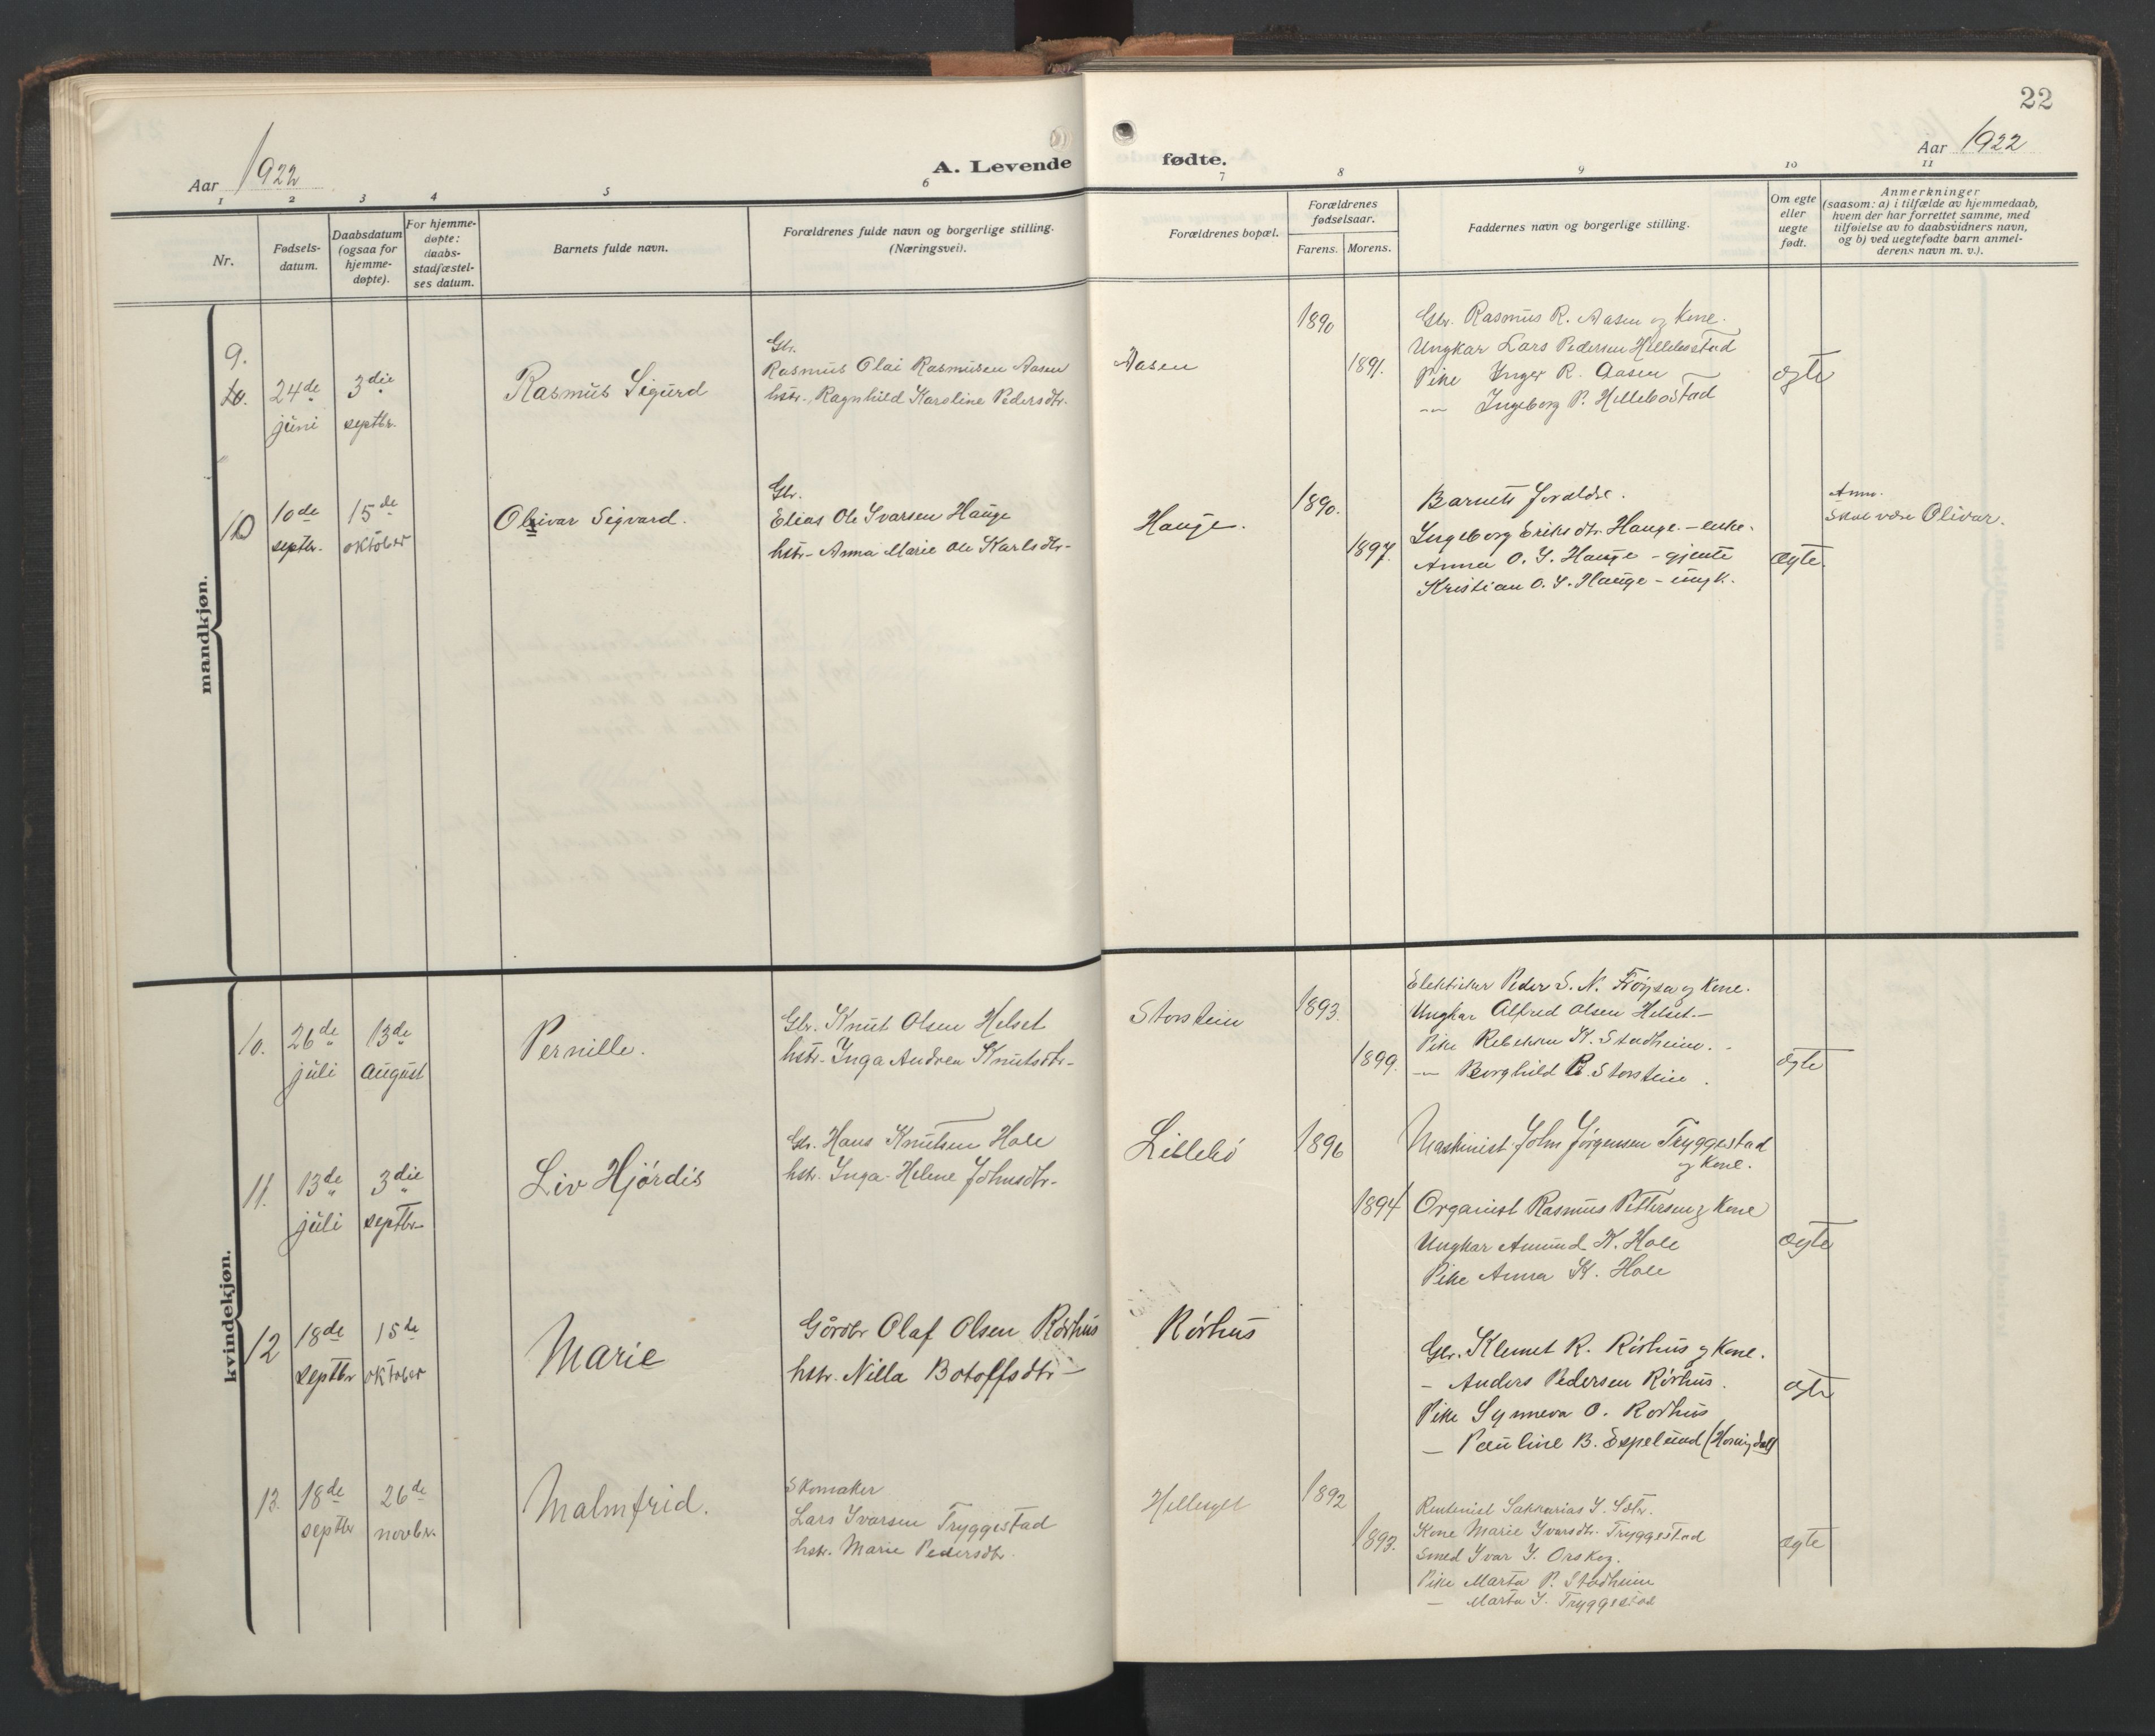 22
Aar 1922
A. Levende fødte.
Aar 1922
1 2 3 4 5 6 7 8 9 10 11
Nr.
Fødsels-
datum.
Daabsdatum
(ogsaa for
hjemme-
døpte).
For hjemme-
døpte:
daabs-
stadfæstel-
ses datum.
Barnets fulde navn.
Forældrenes fulde navn og borgerlige stilling.
(Næringsvei).
Forældrenes bopæl.
Forældrenes
fødselsaar.
Farens. Morens.
Faddernes navn og borgerlige stilling.
Om egte
eller
uegte
født.
Anmerkninger
(saasom: a) i tilfælde av hjemmedaab,
hvem der har forrettet samme, med
tilføielse av to daabsvidners navn,
og b) ved uegtefødte barn anmel-
derens navn m. v.).
mandkjøn.
9.
10.
24de
juni
3die
septbr.
Rasmus Sigurd
Gbr.
Rasmus Olai Rasmusen Aasen
hstr. Ragnhild Karoline Pedersdtr.
Aasen
1890
1891.
Gbr. Rasmus R. Aasen og Kone.
Ungkar Lars Pedersen Hellebostad
Pike Inger R. Aasen
–"– Ingeborg P. Hellebostad
egte
10
10de
septbr.
15de
oktober
Olivar Sigvard.
Gbr.
Elias Ole Ivarsen Hauge
hstr- Anna Marie Ole Karlsdtr-
Hauge.
1890.
1897.
Barnets foreldre.
Ingeborg Eriksdtr. Hauge. - enke.
Anna O. I. Hauge - gjente
Kristian O. I. Hauge - ungk.
egte.
Anm.
Skal være Olivar.
kvindekjøn.
10.
26de
juli
13de
august
Pernille.
Gbr. Knut Olsen Helset
hstr- Inga Andrea Knutsdtr-
Storstein
1893.
1899.
Elektriker Peder S. N. Frøysa og Kone.
Ungkar Alfred Olsen Helset.-
Pike Rebekka K. Stadheim.
–"– Borghild R. Storstein.
egte
11.
13de
juli
3die
septbr-
Liv Hjördis
Gbr. Hans Knutsen Hole
hstr. Inga Helene Johnsdtr-
Lillebö
1896
1894
Maskinist John Jörgensen Tryggestad
og Kone.
Organist Rasmus Pettersen og Kone
Ungkar Amund K. Hole
Pike Anna K. Hole
egte
12
18de
septbr
15de
oktober
Marie
Gårdbr Olaf Olsen Rörhus
hstr. Nilla Botolfsdtr-
Rörhus
Gbr. Klemet R. Rörhus og Kone.
- Anders Pedersen Rörhus.
Pike Synneva O. Rörhus
- Pauline B. Espelund (Horningdal)
egte
13.
18de
septbr
26de
novbr.
Malmfrid.
Skomaker
Lars Ivarsen Tryggestad
hstr. Marie Pedersdtr.
Hellesylt
1892
1893.
Rentenist Sakkarias I. Sætr.
Kone Marie Ivarsdtr. Tryggestad
Smed Ivar I. Orskog.
Pike Marta P. Stadheim
- Marta I. Tryggestad
egte